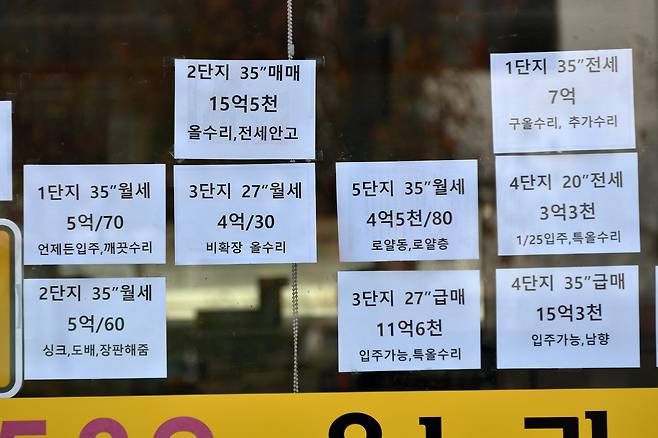 2단지 35″매매
15억5천
올수리,전세안고
1단지 35″전세
7억
구올수리, 추가수리
1단지 35″월세
5억/70
언제든입주,깨끗수리
3단지 27″월세
4억/30
비확장 올수리
5단지 35″월세
4억5천/80
로얄동,로얄층
4단지 20″전세
3억3천
1/25입주,특올수리
2단지 35″월세
5억/60
싱크,도배,장판해줌
3단지 27″급매
11억6천
입주가능,특올수리
4단지 35″급매
15억3천
입주가능,남향